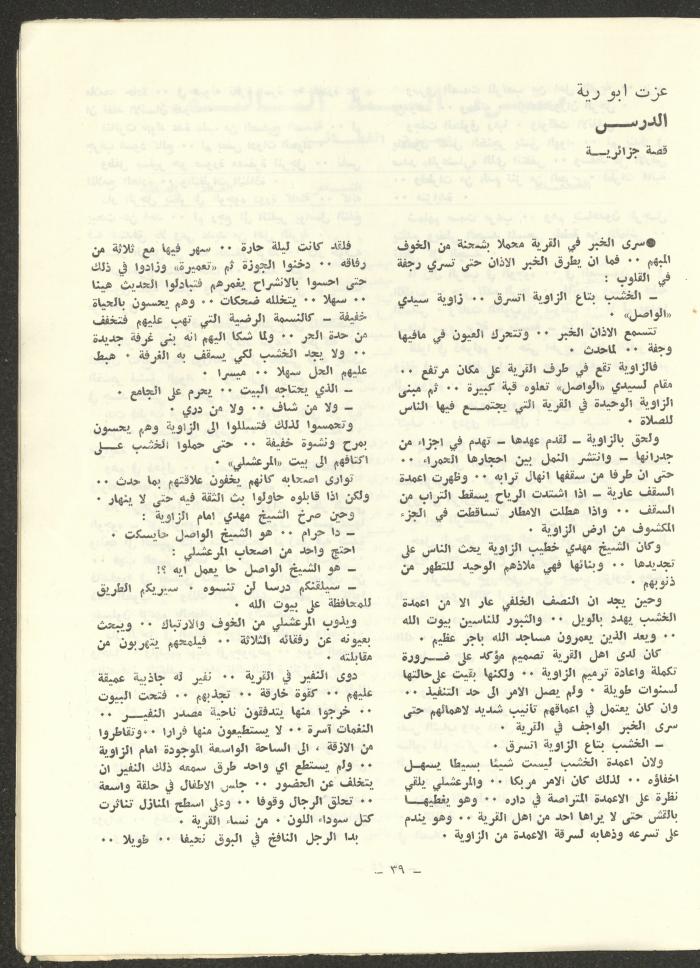 عزت ابو رية
الدرس
قصة جزائرية
●سرى الخبر في القرية محملا بشحنة من الخوف
المبهم ٠٠ فما ان يطرق الخبر الاذان حتى تسري رجفة
في القلوب :
ـ الخشب بتاع الزاوية اتسرق ٠٠ زاوية سيدي
«الواصل» ٠
تتسمع الاذان الخبر ٠٠ وتتحرك العيون في مافيها
وجفة ٠٠ لماحدث ٠
فالزاوية تقع في طرف القرية على مكان مرتفع ٠٠
مقام لسيدي «الواصل» تعلوه قبة كبيرة ٠٠ ثم مبنى
الزاوية الوحيدة في القرية التي يجتمع فيها الناس
للصلاة ٠
ولحق بالزاوية ـ لقدم عهدها ـ تهدم في اجزاء من
جدرانها ـ وانتشر النمل بين احجارها الحمراء ٠٠
حتى ان طرفا من سقفها انهال ترابه ٠٠ وظهرت اعمدة
السقف عارية ـ اذا اشتدت الرياح يسقط التراب من
السقف ٠٠ واذا هطلت الامطار تساقطت في الجزء
المكشوف من ارض الزاوية ٠
وكان الشيخ مهدي خطيب الزاوية يحث الناس على
تجديدها ٠٠ وبنائها فهي ملاذهم الوحيد للتطهر من
ذنوبهم ٠
وحين يجد ان النصف الخلفي عار الا من اعمدة
الخشب يهدد بالويل ٠٠ والثبور للناسين بيوت الله
٠٠ ويعد الذين يعمرون مساجد الله باجر عظيم ٠
كان لدى اهل القرية تصميم مؤكد على ضرورة
تكملة واعادة ترميم الزاوية ٠٠ ولكنها بقيت على حالتها
لسنوات طويلة ٠ ولم يصل الامر الى حد التنفيذ ٠٠
وان كان يعتمل في اعماقهم تأنيب شديد لاهمالهم حتى
سرى الخبر الواجف في القرية ٠
ـ الخشب بتاع الزاوية اتسرق ٠
ولان اعمدة الخشب ليست شيئا بسيطا يسهل
اخفاؤه ٠٠ لذلك كان الامر مربكا ٠٠ والمرعشلي يلقي
نظرة على الاعمدة المتراصة في داره ٠٠ وهو يغطيها
بالقش حتى لا يراها احد من اهل القرية ٠٠ وهو يندم
على تسرعه وذهابه لسرقة الاعمدة من الزاوية ٠
فلقد كانت ليلة حارة ٠٠ سهر فيها مع ثلاثة من
رفاقه ٠٠ دخنوا الجوزة ثم «تعميرة» وزادوا في ذلك
حتى احسوا بالانشراح يغمرهم فتبادلوا الحديث هينا
٠٠ سهلا ٠٠ يتخلله ضحكات ٠٠ وهم يحسون بالحياة
خفيفة ـ كالنسمة الرضية التي تهب عليهم فتخفف
من حدة الحر ٠٠ ولما شكا اليهم انه بنى غرفة جديدة
٠٠ ولا يجد الخشب لكي يسقف به الغرفة ٠ هبط
عليهم الحل سهلا ٠٠ ميسرا ٠
ـ الذي يحتاجه البيت ٠٠ يحرم على الجامع ٠
ـ ولا من شاف ٠٠ ولا من دري ٠
وتحمسوا لذلك فتسللوا الى الزاوية وهم يحسون
بمرح ونشوة خفيفة ٠٠ حتى حملوا الخشب على
اكتافهم الى بيت «المرعشلي» ٠
توارى اصحابه كانهم يخفون علاقتهم بما حدث ٠٠
ولكن اذا قابلوه حاولوا بث الثقة فيه حتى لا ينهار ٠
وحين صرخ الشيخ مهدي امام الزاوية :
ـ دا حرام ٠٠ هو الشيخ الواصل حايسكت ٠
احتج واحد من اصحاب المرعشلي :
ـ هو الشيخ الواصل حا يعمل ايه ؟!
ـ سيلقنكم درسا لن تنسوه ٠ سيريكم الطريق
للمحافظة على بيوت الله ٠
ويذوب المرعشلي من الخوف والارتباك ٠٠ ويبحث
بعيونه عن رفقائه الثلاثة ٠٠ فيلمحهم يتهربون من
مقابلته ٠
دوى النفير في القرية ٠٠ نفير له جاذبية عميقة
عليهم ٠٠ كقوة خارقة ٠٠ تجذبهم ٠٠ فتحت البيوت
٠٠ خرجوا منها يتدفقون ناحية مصدر النفير ٠٠
النغمات آسرة ٠٠ لا يستطيعون منها فرارا ٠٠ وتقاطروا
من الازقة ، الى الساحة الواسعة الموجودة امام الزاوية
٠٠ ولم يستطع اي واحد طرق سمعه ذلك النفير ان
يتخلف عن الحضور ٠٠ جلس الاطفال في حلقة واسعة
٠٠ تحلق الرجال وقوفا ٠٠ وعلى اسطح المنازل تناثرت
كتل سوداء اللون ٠ من نساء القرية ٠
بدا الرجل النافخ في البوق نحيفا ٠٠ طويلا ٠٠
ـ ٣٩ ـ